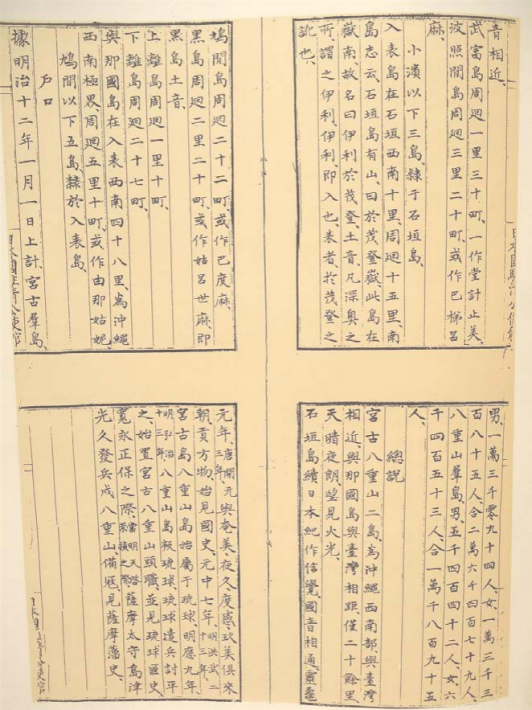 音相近、
武富島周廻一里三十町、一作堂計止美、
波照間島周廻三里二十町、或作巴梯呂
麻、
小濱以下三島、隸于石垣島、
入表島在石垣西南十里、周廻十五里、南
島志云石垣島有山、曰於茂登嶽、此島在
嶽南、故名曰伊利於茂登、土音凡深奧之
所、謂之伊利、伊利即入也、表者於茂登之
訛也、
鳩間島周廻二十二町、或作巴度麻、
黑島周廻二里二十町、或作姑呂世麻、即
黑島土音、
上離島周廻一里十町、
下離島周廻二十七町、
與那國島在入表西南四十八里、為沖繩
西南極界、周廻五里十町、或作由那姑妮、
鳩間以下五島、隸於入表島、
戶口
據明治十二年一月一日上計、宮古羣島、
男、一萬三千零九十四人、女、一萬三千三
百八十五人、合二萬六千四百七十九人、
八重山羣島、男、五千四百四十二人、女、六
千四百五十三人、合一萬千八百九十五
人、
總說
宮古八重山二島、為沖繩西南部與臺灣
相近、與那國島與臺灣相距僅二十餘里、
天晴夜朗、望見火光、
石垣島續日本紀作信覺國音相通、靈龜
元年、唐開元三年與奄美、夜久、度感、玖美俱來
朝貢方物、始見國史、元中七年、明洪武二十三年、
宮古島八重山島始屬于琉球、明應九年、
明弘治十三年八重山島叛琉球、琉球遣兵討平
之、始置宮古八重山頭職、並見琉球國史、
寬永正保之際、當明天啓崇禎之際薩摩太守島津
光久發兵戍八重山備寇、見薩摩藩史、